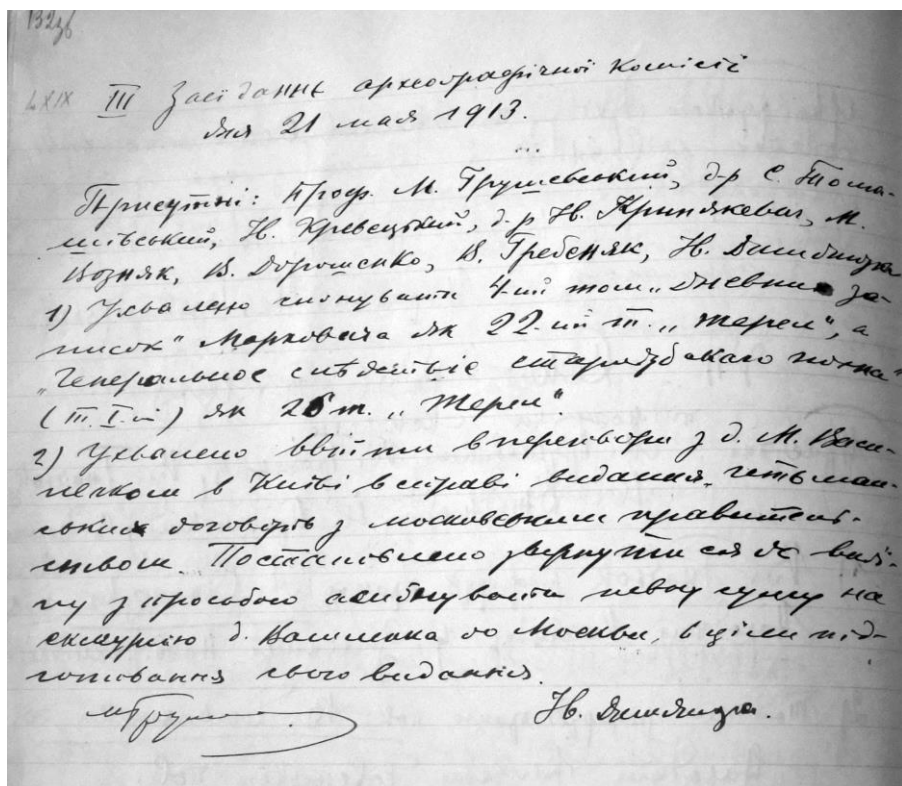 132зб
LXIX III Засїданнє археографічної комісії
дня 21 мая 1913.
Присутні: Проф. М. Грушевський, д-р С. Тома-
шівський, Ів. Кревецький, д-р Ів. Крипякевич, М.
Возняк, В. Дорошенко, В. Гребеняк, Ів. Джиджора
1) Ухвалено 4-ий том „Дневних за-
писок" Марковича як 22-ий т. „Жерел", а
„Генеральное слѣдствіе стародубскаго полка"
(т. I.й) як 26 т. „Жерел".
2) Ухвалено ввійти в переговори з д. М. Васи-
ленком в Київі в справі видання гетьман-
ських договорів з московським правитель-
ством. Постановлено звернути ся до виді-
лу з просьбою асиґнувати певну суму на
екскурсію д. Василенка до Москви, в ціли під-
готовання свого видання.
МГруш Ів. Джиджора.